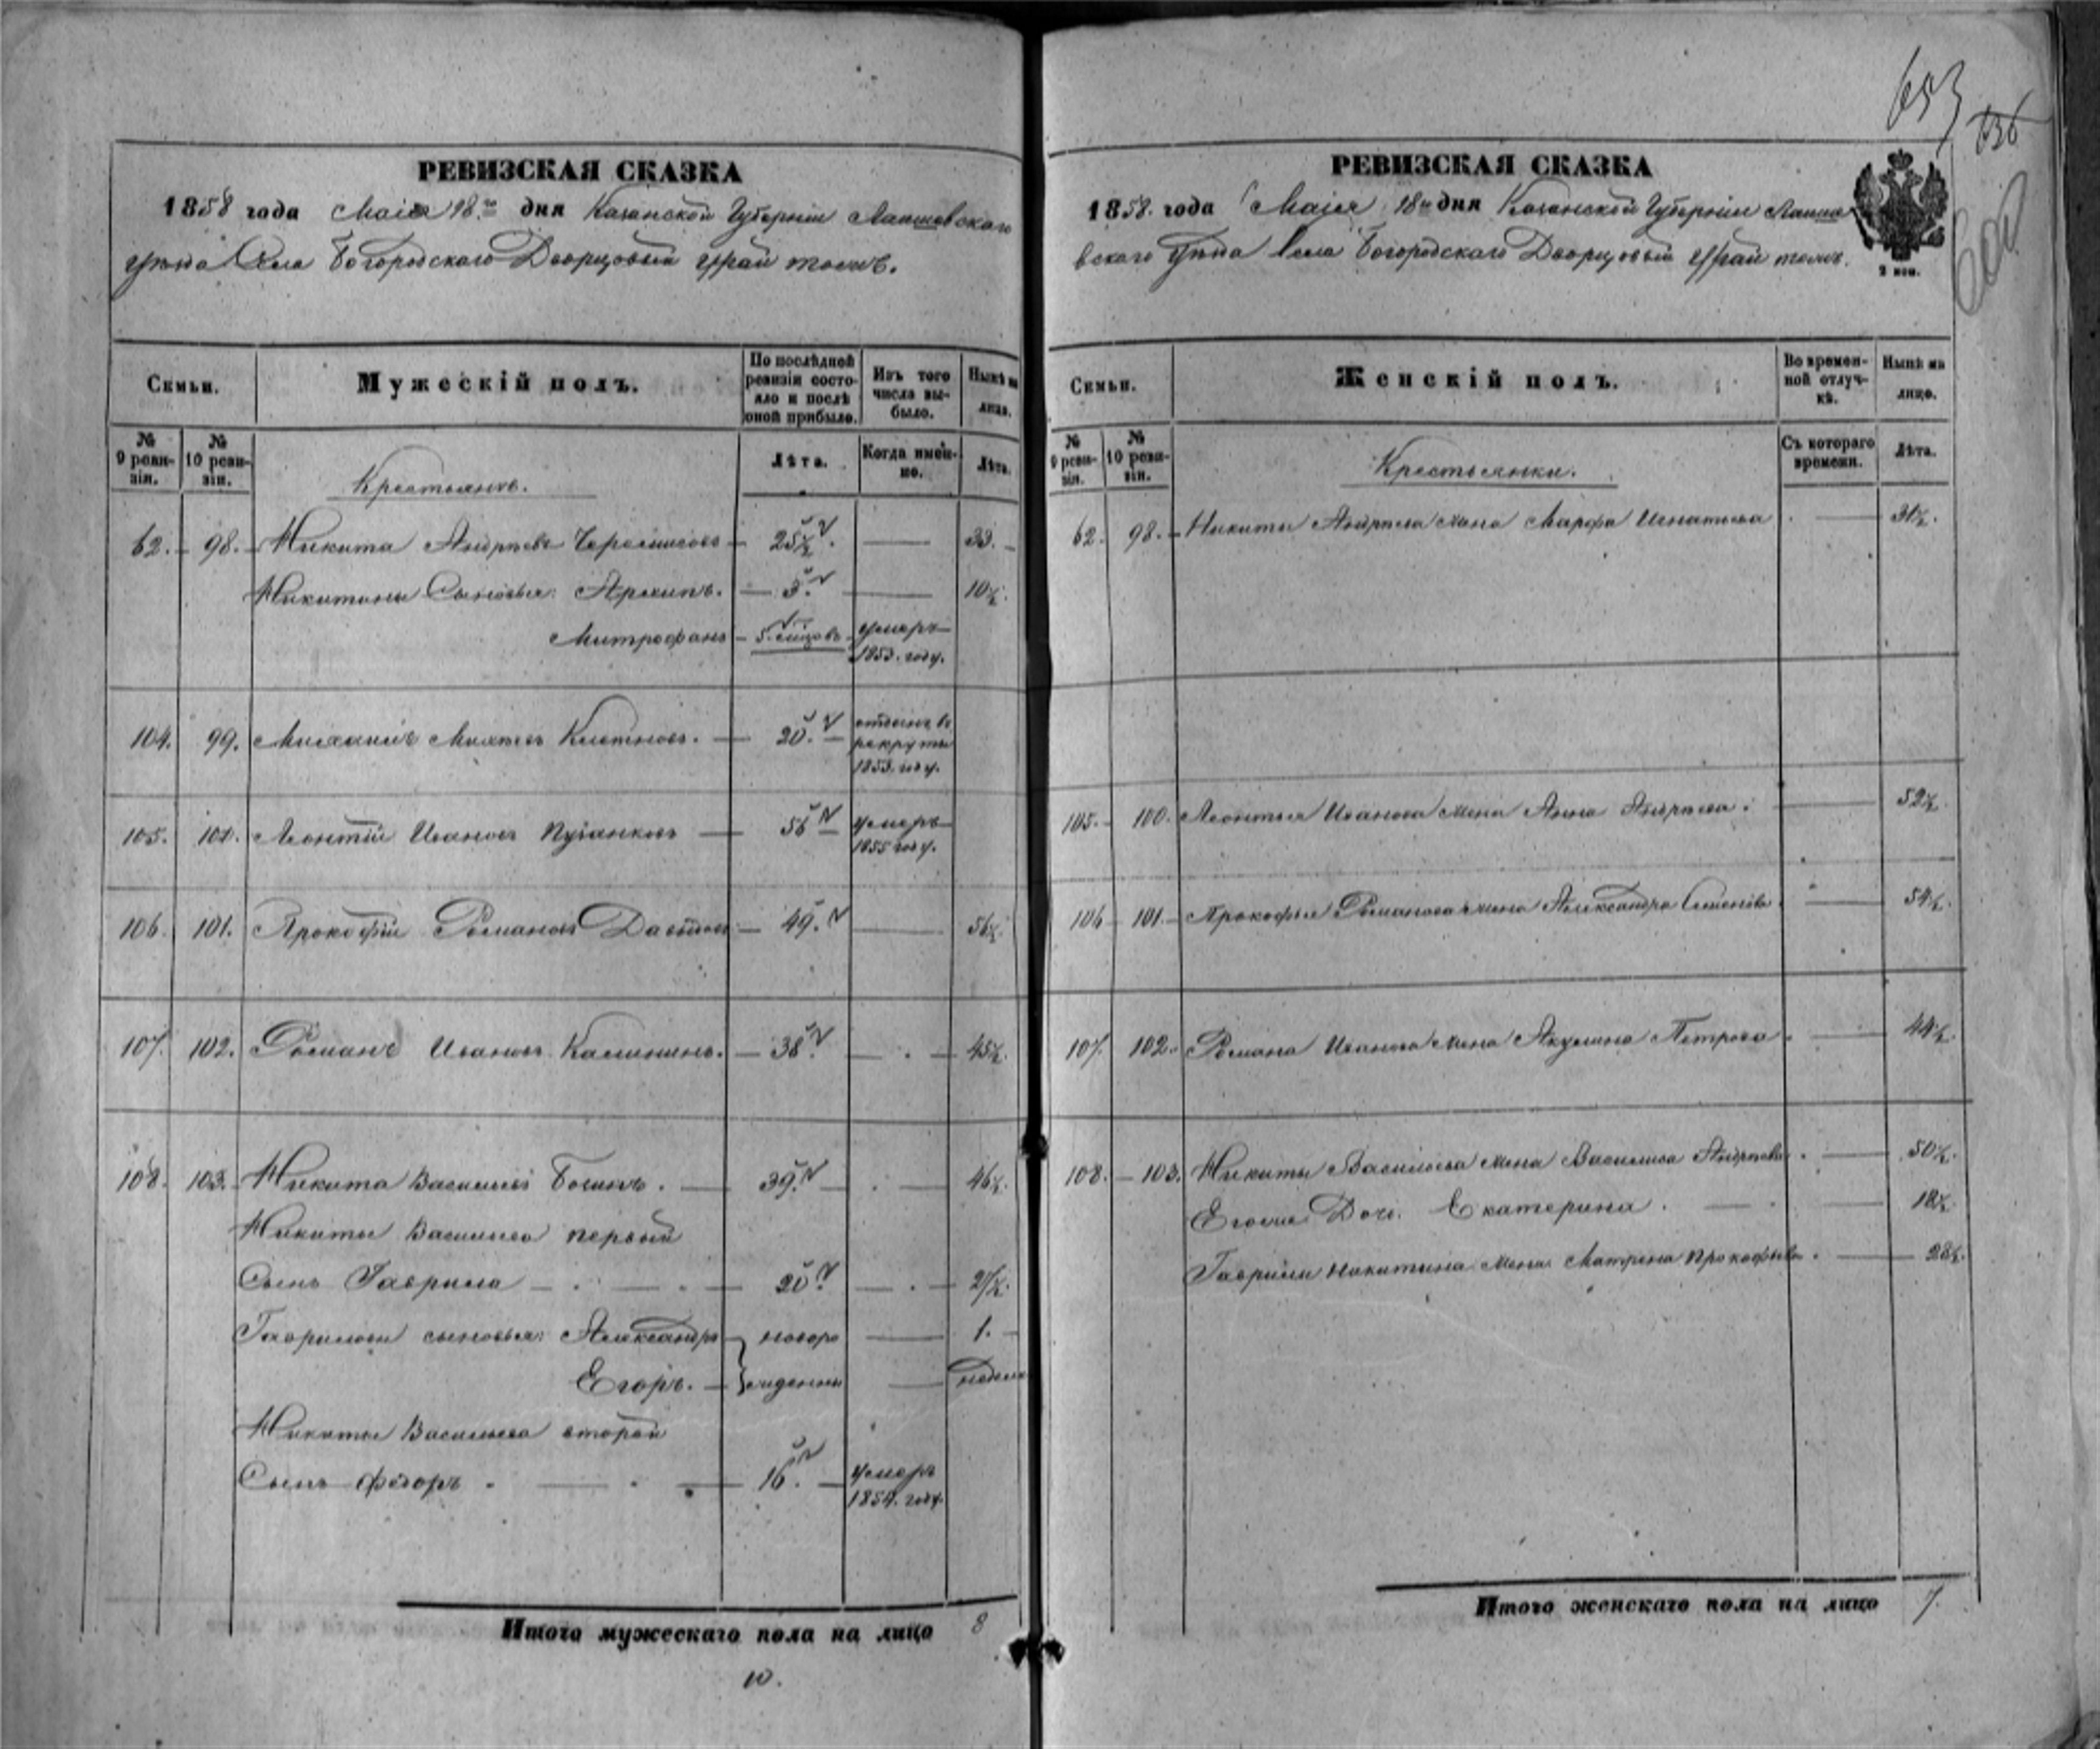 653
РЕВИЗСКАЯ СКАЗКА
1858 года Маія 18го дня Казанской Губерніи Лаишевскаго
уѣзда Села Богородскаго Дворцовый Урай тожъ.
Семьи.
Мужескій полъ.
По послѣдней ревизіи состояло и послѣ оной прибыло.
Изъ того числа выбыло.
Нынѣ на лицо.
№ 9 ревизіи.
№ 10 ревизіи.
Лѣта.
Когда именно.
Лѣта.
Крестьянъ.
62. 98. Никита Андреевъ 25½. 33.
Никитины Сыновья: Архипъ. 3. 10½.
Митрофанъ 5. умеръ 1853. году.
104. 99. Михаилъ 20. отданъ въ рекруты 1853. году.
105. 100. Леонтій Ивановъ 56 умеръ 1855 году.
106. 101. Прокофій Романовъ Давыдовъ 49. 56½.
107. 102. Романъ Ивановъ Калининъ. 38. 45½.
108. 103. Никита Васильевъ 39. 46½.
Никиты Васильева первый
Сынъ Гаврила 20. 27½.
Гавриловы сыновья: Александръ новоро 1.
Егоръ. жденны недели
Никиты Васильева второй
Сынъ Федоръ 16. умеръ 1854. году.
Итого мужескаго пола на лицо 8
10.
РЕВИЗСКАЯ СКАЗКА
1858. года Маія 18го дня Казанской Губерніи Лаише
вскаго Уѣзда Села Богородскаго Дворцовый Урай тожъ.
2 коп.
Семьи.
Женскій полъ.
Во временной отлучкѣ.
Нынѣ на лицо.
№ 9 ревизіи.
№ 10 ревизіи.
Съ котораго времени.
Лѣта.
Крестьянки.
62. 98. Никиты Андреева жена Марфа Игнатьева 31½.
105. 100. Леонтья Иванова жена Анна Андреева. 52½.
106 101. Прокофья Романова жена Александра Семенова 54½.
107. 102. Романа Иванова жена Акулина Петрова 44½.
108. 103. Никиты Васильева жена Василиса Андреева. 50½.
Егоже Дочь Екатерина. 18½.
Гаврилы Никитина жена Матрена Прокофьева. 28½.
Итого женскаго пола на лицо 7.